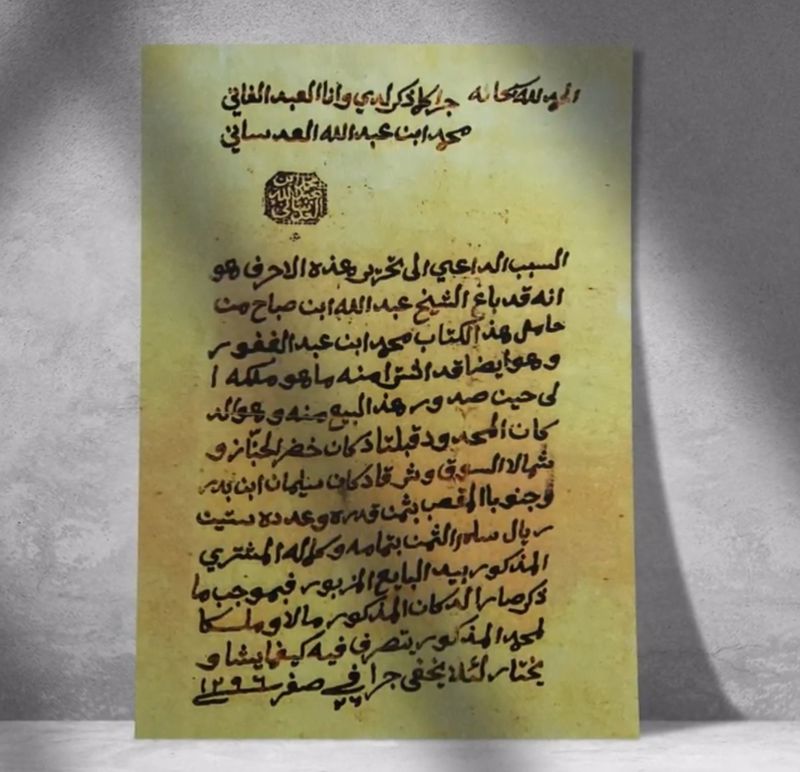 الحمد لله سبحانه جرا كما ذكر لدي وانا العبد الفاني
محمد ابن عبدالله العدساني
السبب الداعي الى تحرير هذه الاحرف هو
انه قد باع الشيخ عبدالله ابن صباح من
حامل هذا الكتاب محمد ابن عبد الغفور
وهو ايضا قد اشترا منه ما هو ملكه ا
لى حين صدور هذا البيع منه وهو الد
كان المحدود قبلتا دكان خضر الخباز و
شمالا السوق وشرقا دكان سليمان ابن بدر
وجنوبا المقصب بثمن قدره وعدده ستين
ريال سلم الثمن بتمامه وكماله المشتري
المذكور بيد البايع المزبور فبموجب ما
ذكر صار الدكان المذكور مالا وملكا
لمحمد المذكور يتصرف فيه كيفما يشا و
يختار لئلا يخفى جرا في ٢٦ صفر سنة ١٢٩٦